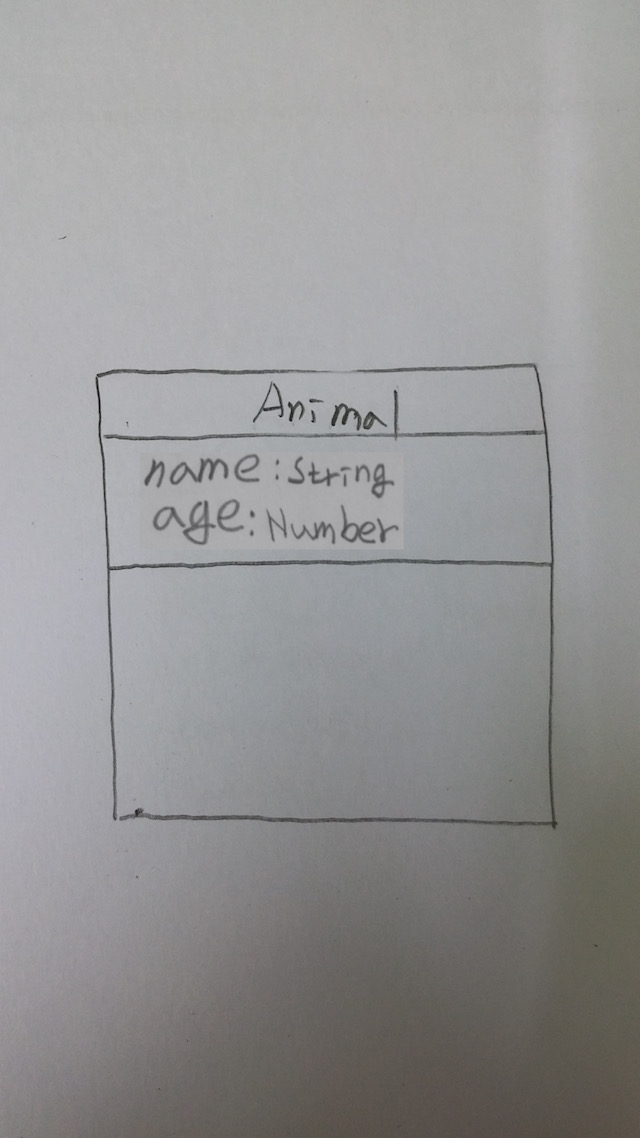 Animal
name:String
age:Number